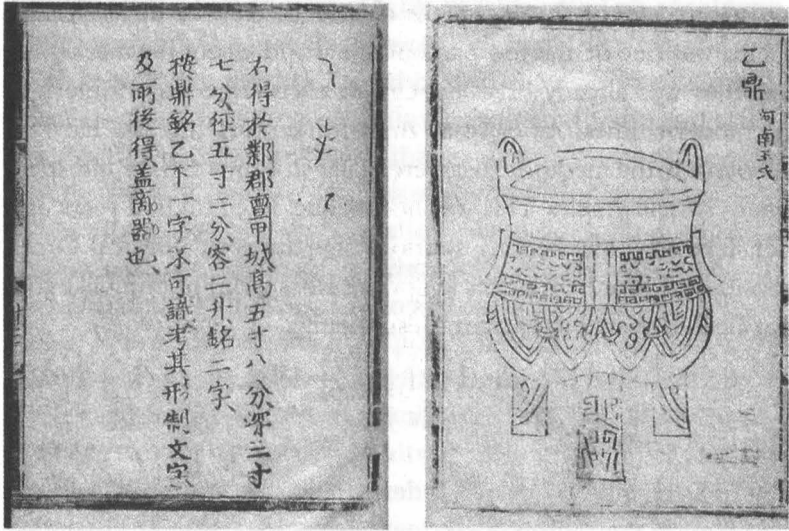 乙鼎 河南王氏
右得於鄴郡亶甲城高五寸八分深三寸
七分徑五寸二分容二升銘二字、
按鼎銘乙下一字不可識考其形制文字
及所從得盖商器也、